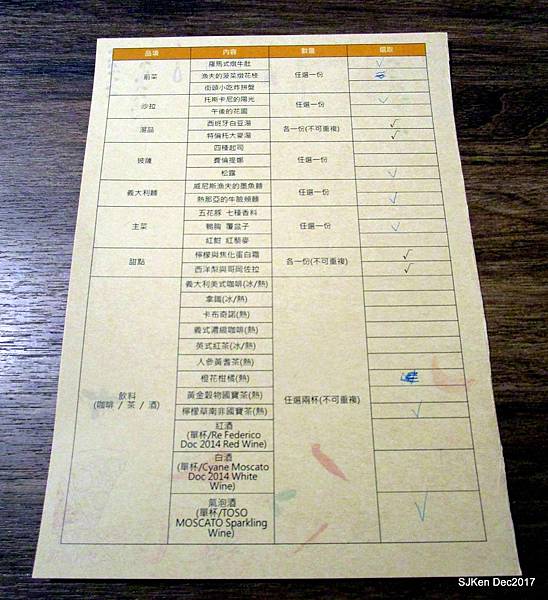 品項 內容 數量 選取
羅馬式燉牛肚
前菜 漁夫的菠菜燉花枝 任選一份
街頭小吃炸拼盤
沙拉 托斯卡尼的陽光 任選一份
午後的花園
湯品 西班牙白豆湯 各一份(不可重複)
特倫托大麥湯
披薩 四種起司 任選一份
費倫提娜
松露
義大利麵 威尼斯漁夫的墨魚麵 任選一份
熱那亞的牛臉頰麵
主菜 五花豚 七種香料 任選一份
鴨胸 覆盆子
紅魽 紅藜麥
甜點 檸檬與焦化蛋白霜 各一份(不可重複)
西洋梨與哥岡佐拉
飲料
(咖啡 / 茶 / 酒)
義大利美式咖啡(冰/熱)
拿鐵(冰/熱)
卡布奇諾(熱)
義式濃縮咖啡(熱)
英式紅茶(冰/熱)
人參黃耆茶(熱)
橙花柑橘(熱)
黃金穀物國寶茶(熱) 任選兩杯(不可重複)
檸檬草南非國寶茶(熱)
紅酒
(單杯/Re Federico
Doc 2014 Red Wine)
白酒
(單杯/Cyane Moscato
Doc 2014 White
Wine)
氣泡酒
(單杯/TOSO
MOSCATO Sparkling
Wine)
SJKen Dec2017